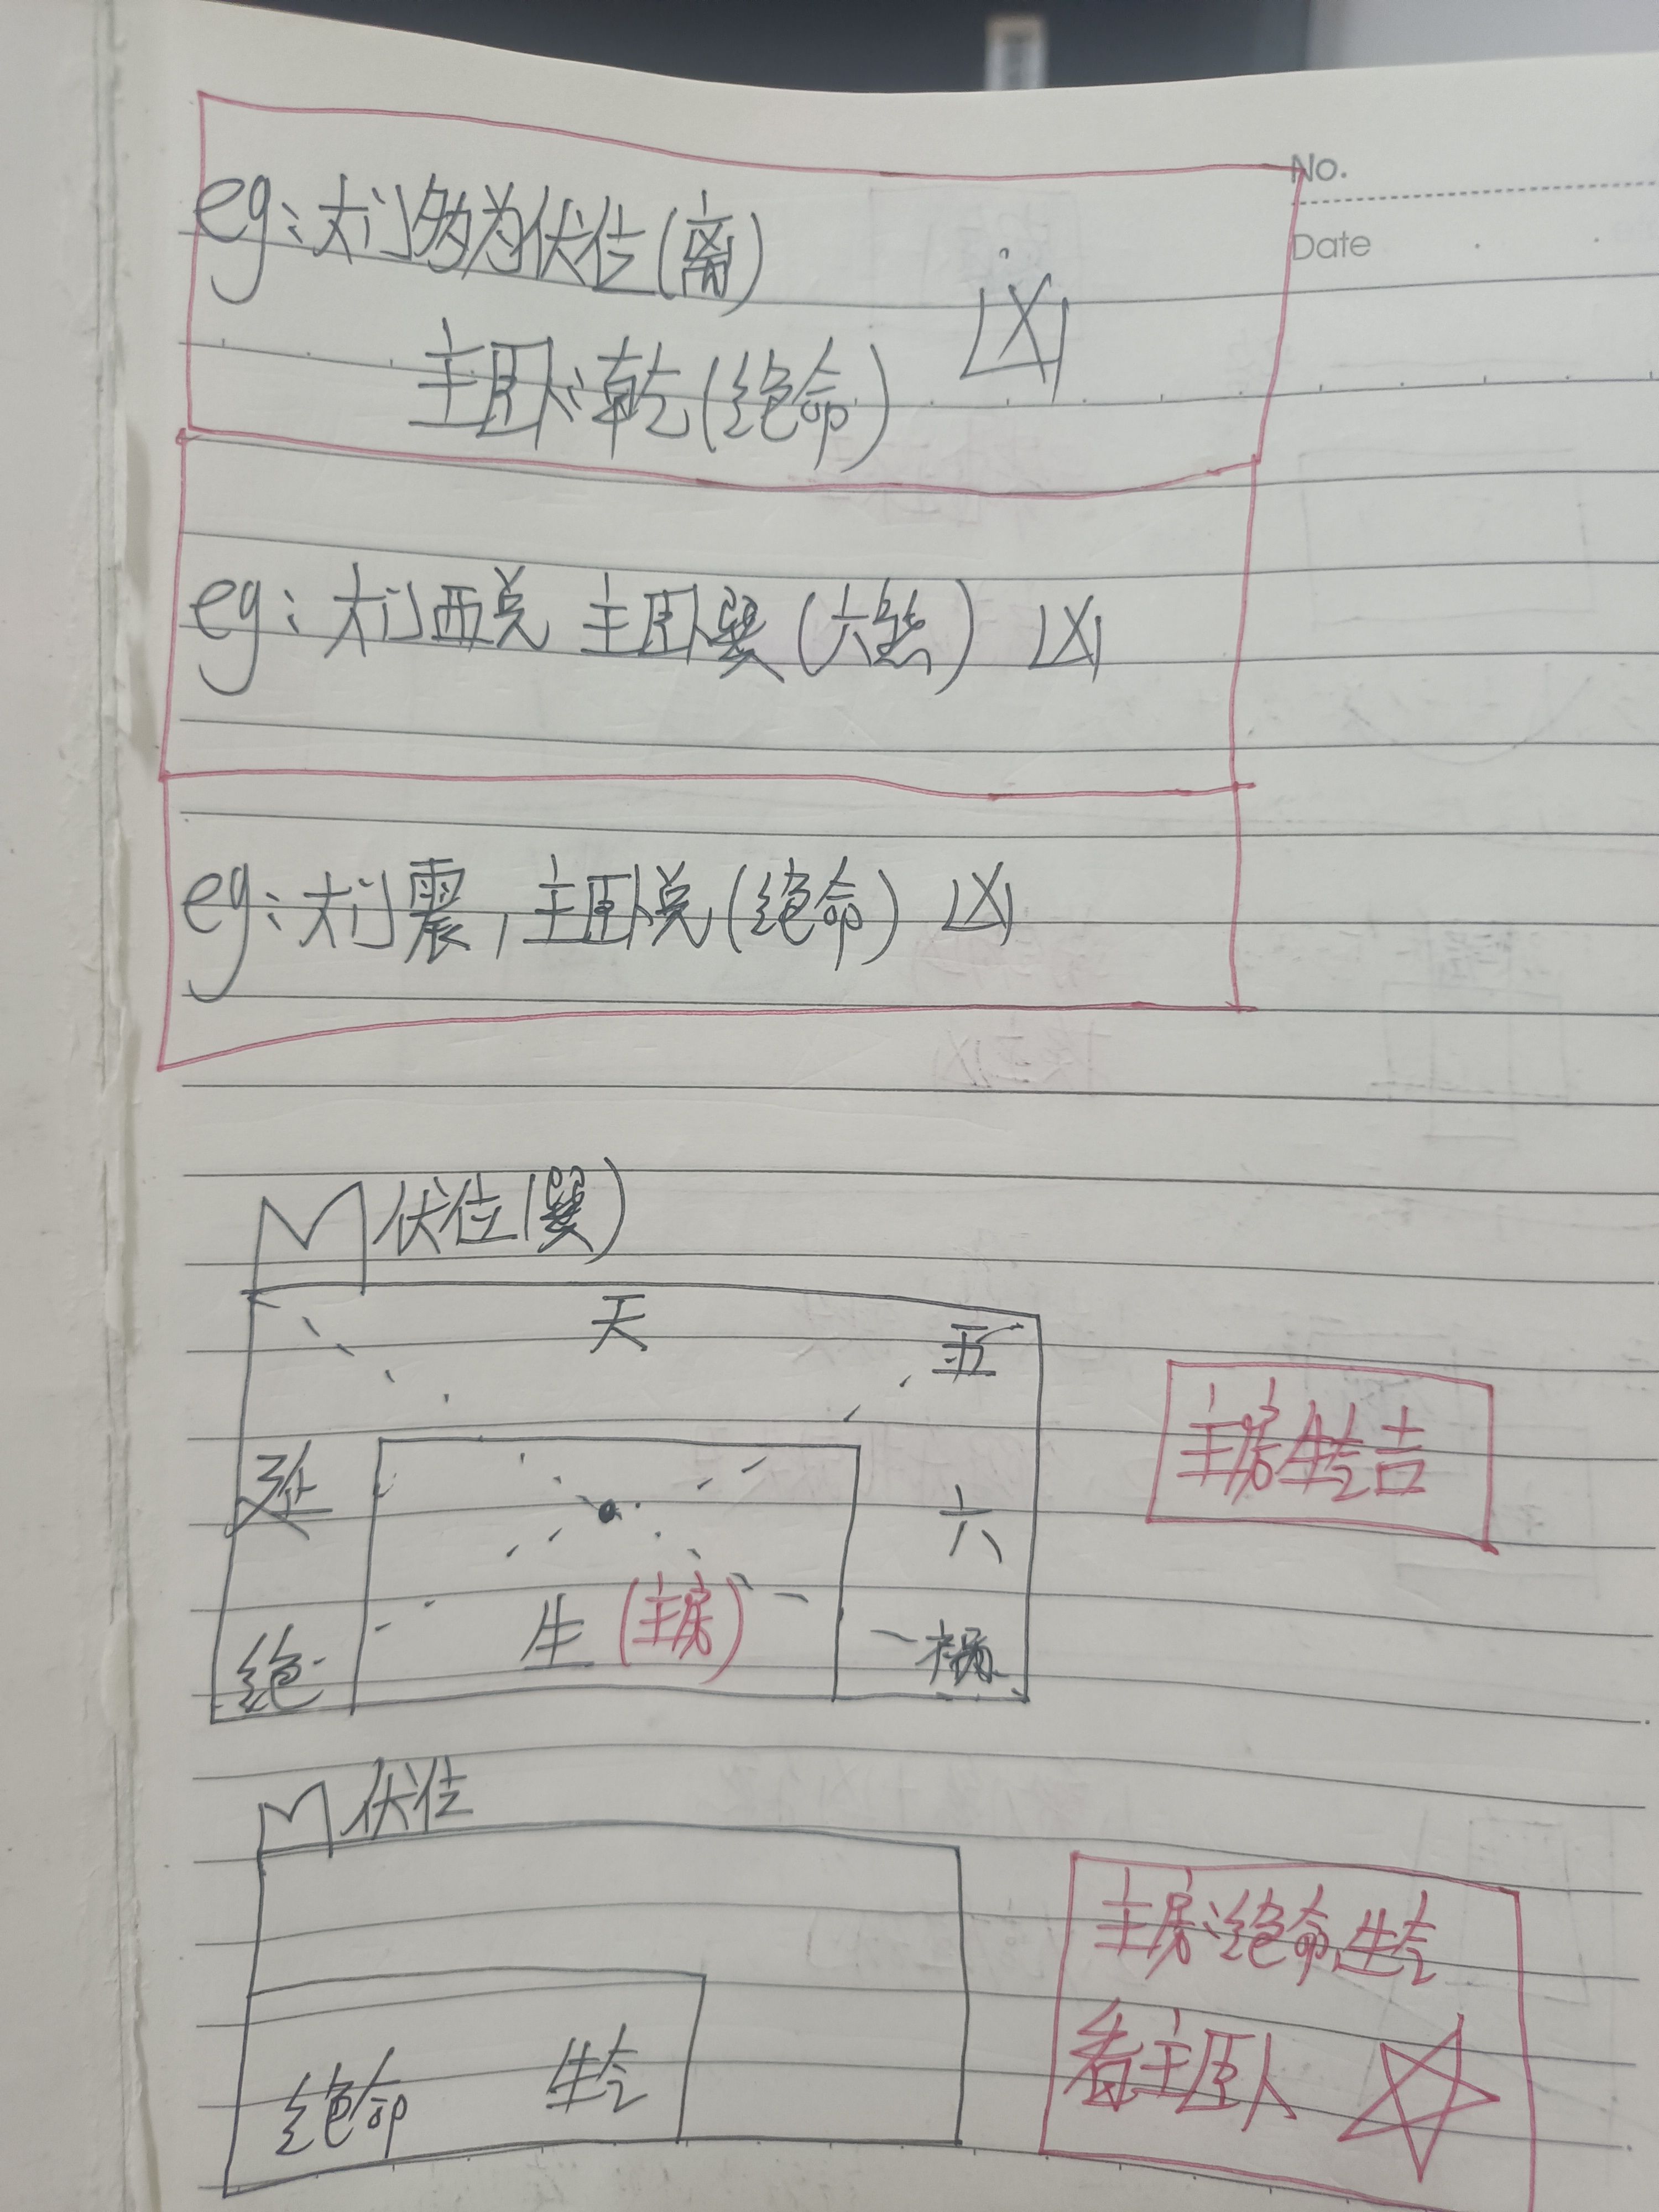 eg:大门多为伏位(离)
No.
Date
主卧:乾(绝命) 凶
eg:大门西兑 主卧巽(六煞) 凶
eg:大门震,主卧兑(绝命) 凶
伏位(巽)
天
五
延
六
主房生气吉
生(主房)
绝
祸
伏位
主房:绝命,生气
看主卧人
绝命 生气